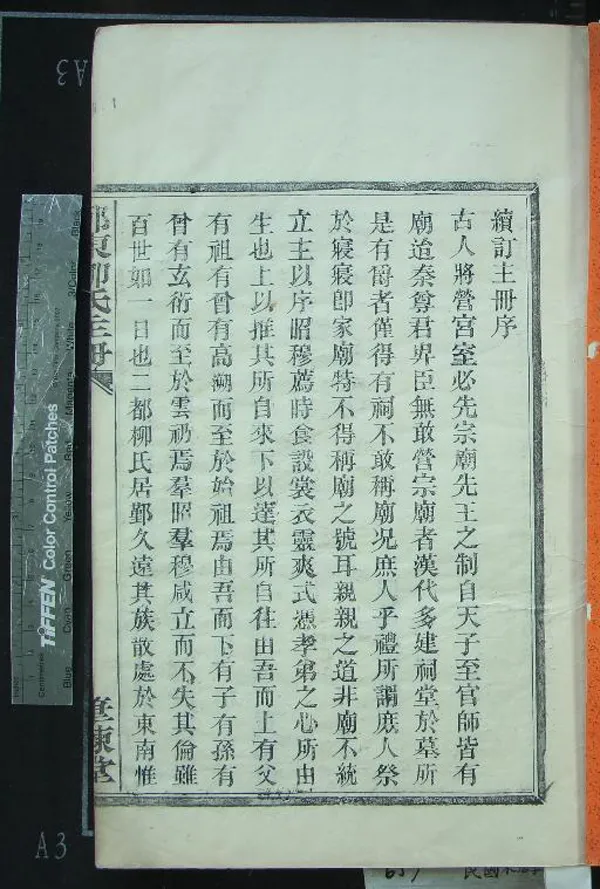 續訂主冊序
古人將營宮室必先宗廟先王之制自天子至官師皆有
廟迨秦尊君卑臣無敢營宗廟者漢代多建祠堂於墓所
是有爵者僅得有祠不敢稱廟况庶人乎禮所謂庶人祭
於寢寢卽家廟特不得稱廟之號耳親親之道非廟不統
立主以序昭穆薦時食設裳衣靈爽式憑孝弟之心所由
生也上以推其所自來下以達其所自往由吾而上有父
有祖有曾有高溯而至於始祖焉由吾而下有子有孫有
曾有玄衍而至於雲礽焉羣昭羣穆咸立而不失其倫雖
百世如一日也二都柳氏居鄞久遠其族散處於東南惟
東柳氏主冊
堂
A3
A3
TIFFEN Color Control Patches
Blue
Cyan
Green
Yellow
Red
Magenta
White
3/Color
Black
Centimetres
Inches